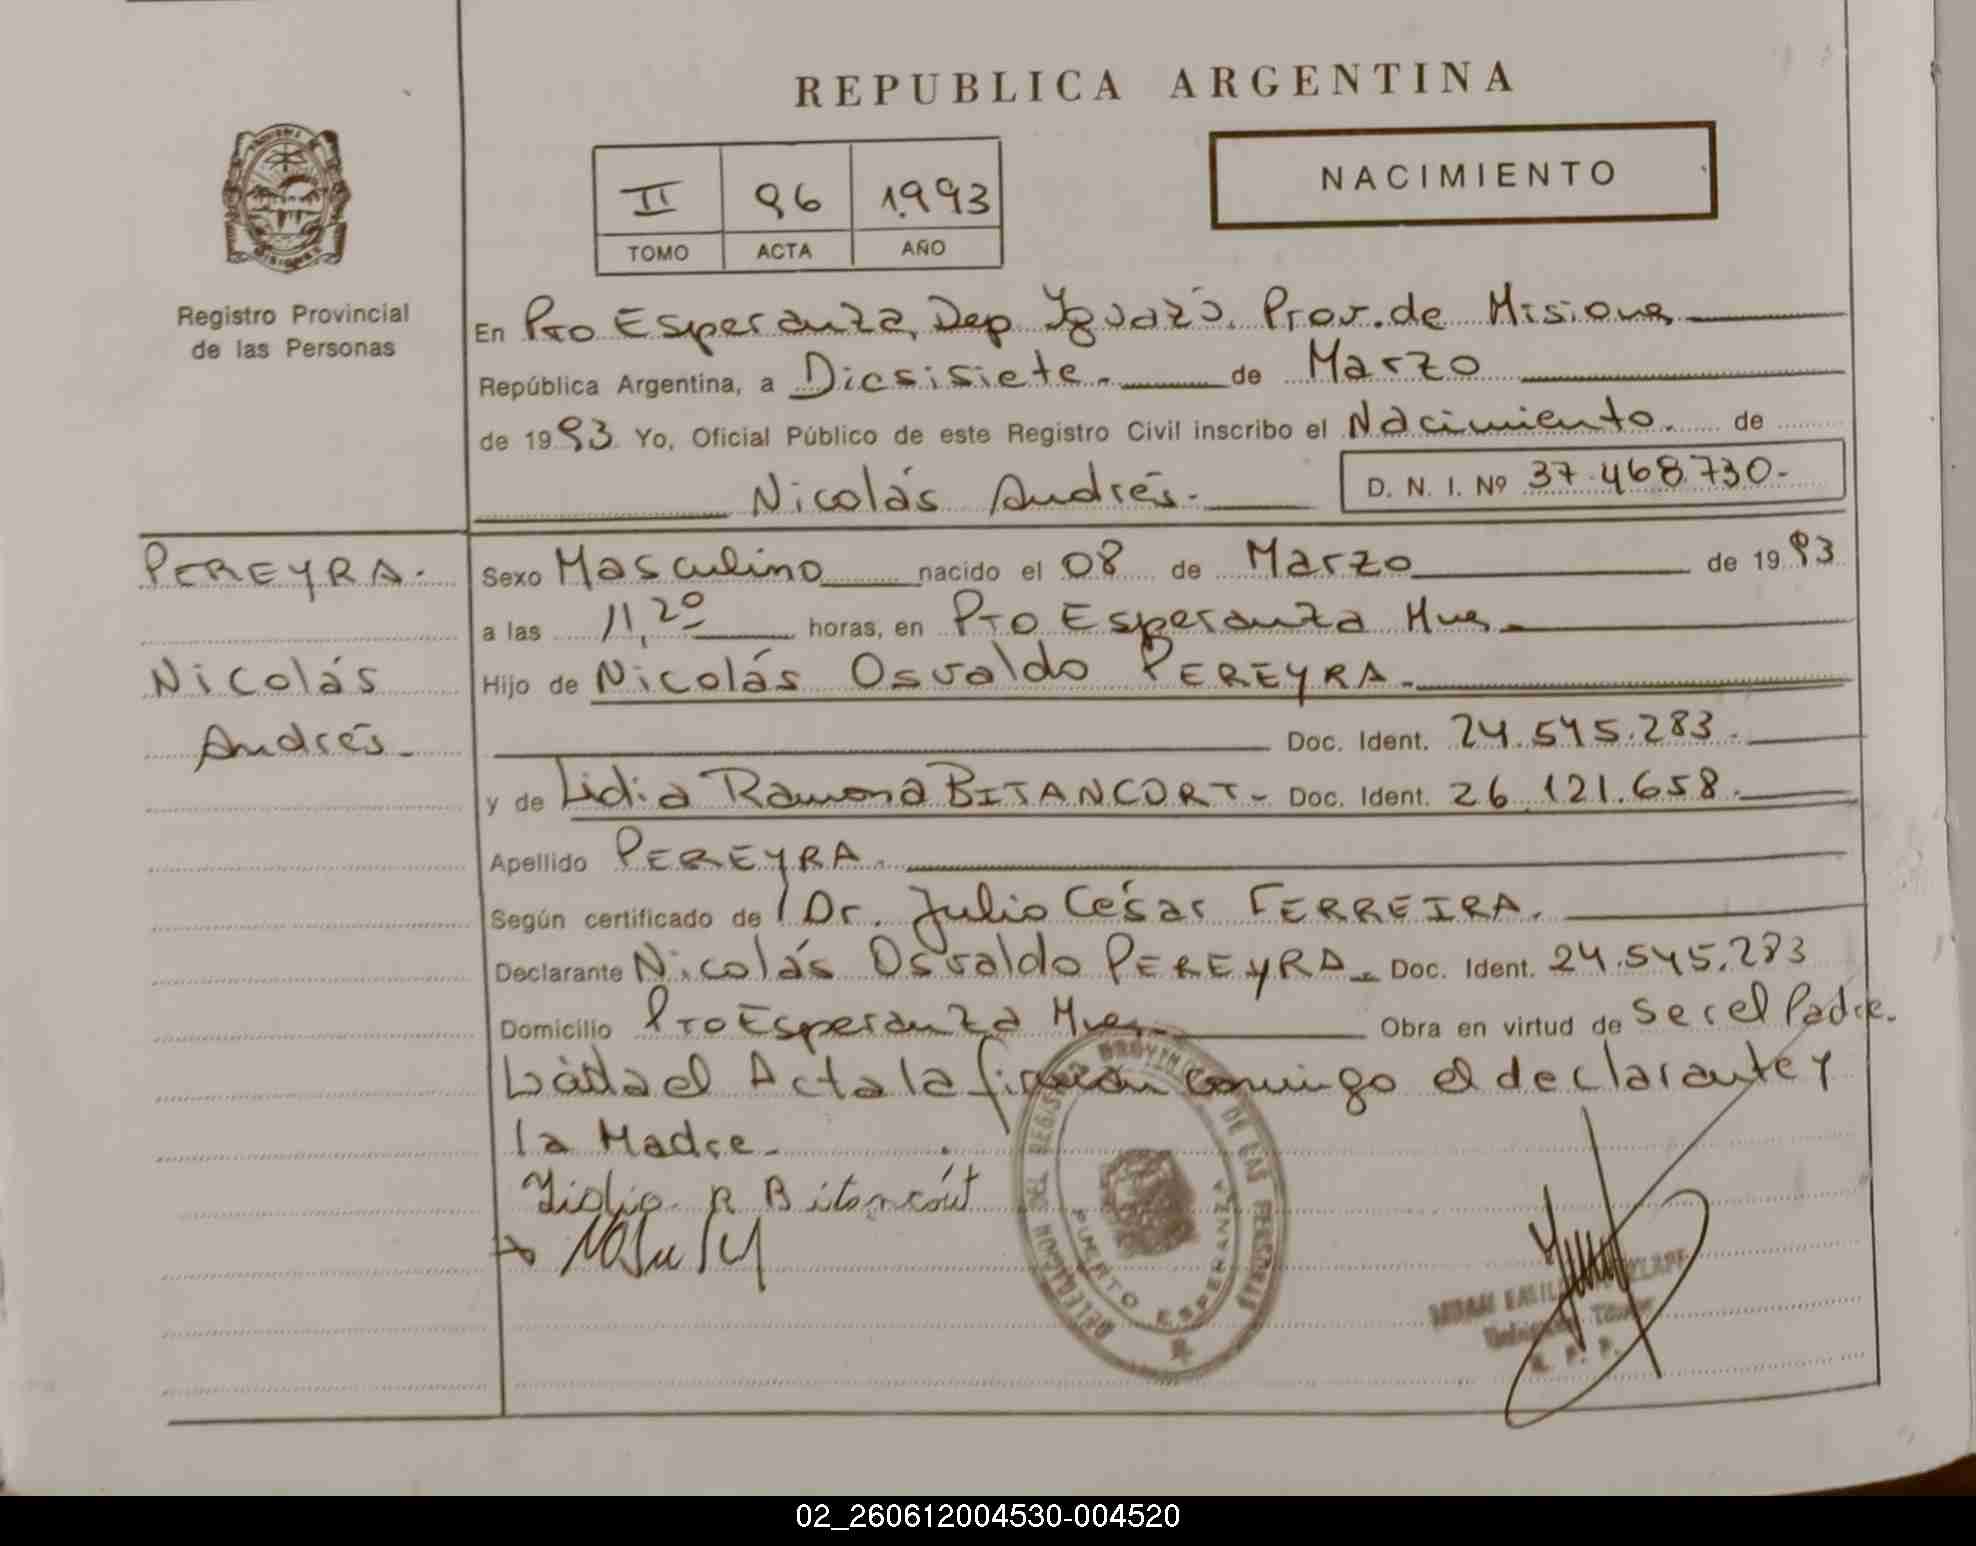 REPUBLICA ARGENTINA
NACIMIENTO
II 96 1.993
TOMO ACTA AÑO
Registro Provincial
de las Personas
En Pto Esperanza, Dep Yguazú. Prov. de Misiones
República Argentina, a Diesisiete.- de Marzo
de 1993 Yo, Oficial Público de este Registro Civil inscribo el Nacimiento. de
Nicolás Andrés.- D. N. I. Nº 37.468.730-
PEREYRA.
Nicolás
Andrés-
Sexo Masculino nacido el 08 de Marzo de 1993
a las 11,20 horas, en Pto Esperanza Mnes.
Hijo de Nicolás Osvaldo PEREYRA.-
Doc. Ident. 24.545.283.-
y de Lidia Ramona BITANCORT- Doc. Ident. 26.121.658.-
Apellido PEREYRA.
Según certificado de Dr. Julio César FERREIRA.
Declarante Nicolás Osvaldo PEREYRA.- Doc. Ident. 24.545.283
Domicilio Pto Esperanza Mnes.- Obra en virtud de ser el Padre.
Leída el Acta la firman conmigo el declarante y
la Madre.-
Lidia R Bitancórt
DELEGACION DEL REGISTRO PROVINCIAL DE LAS PERSONAS
PUERTO ESPERANZA
R. P. P.
02_260612004530-004520